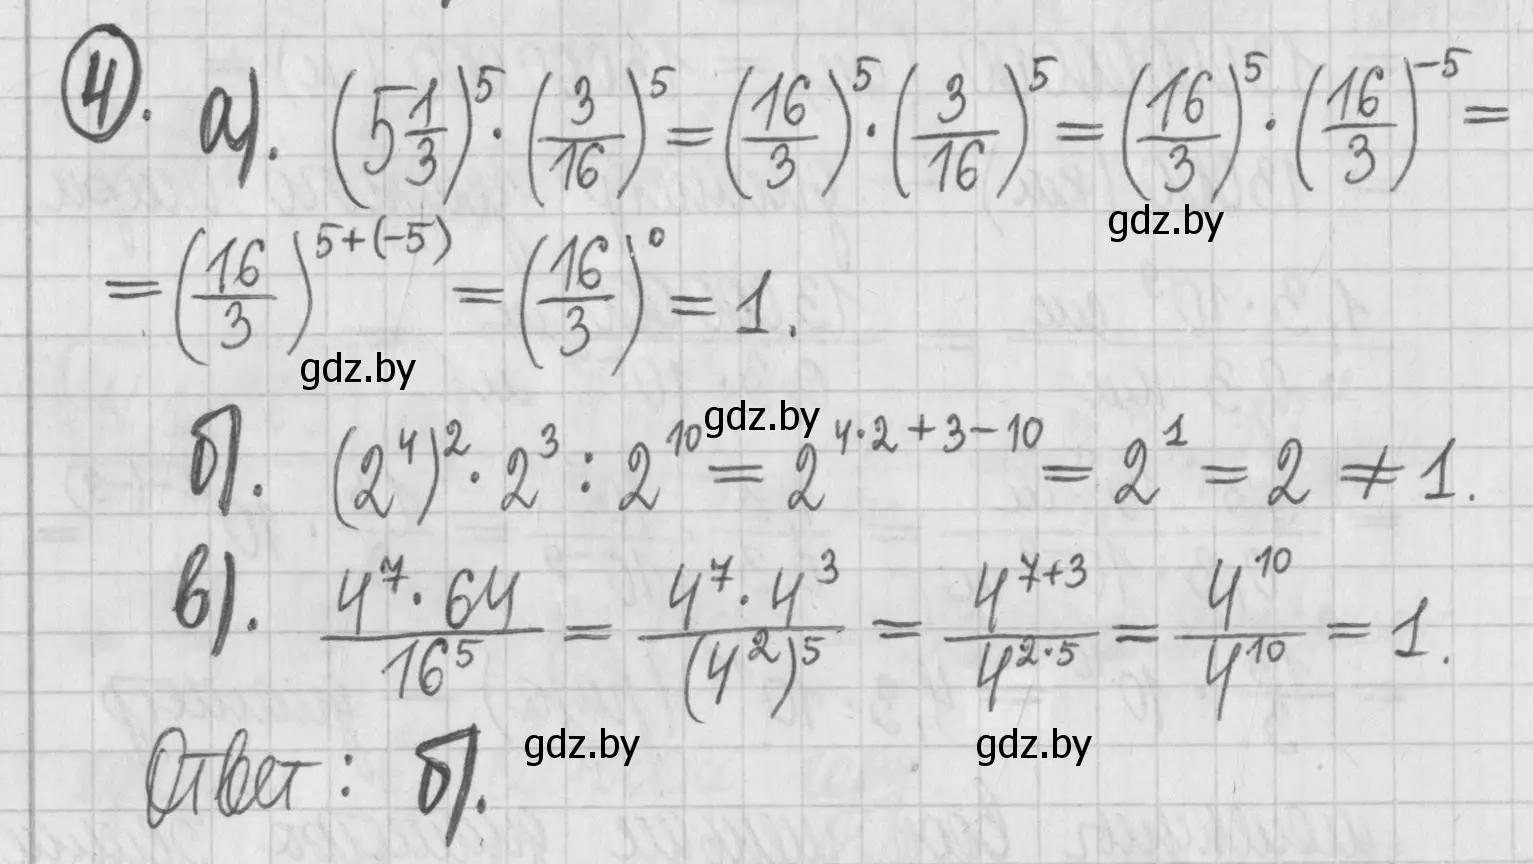 4. а). (5 1/3)^5 · (3/16)^5 = (16/3)^5 · (3/16)^5 = (16/3)^5 · (16/3)^-5 =
gdz.by
= (16/3)^5+(-5) = (16/3)^0 = 1.
gdz.by
gdz.by
б). (2^4)^2 · 2^3 : 2^10 = 2^4·2+3-10 = 2^1 = 2 ≠ 1.
в). 4^7 · 64 / 16^5 = 4^7 · 4^3 / (4^2)^5 = 4^7+3 / 4^2·5 = 4^10 / 4^10 = 1.
gdz.by gdz.by
Ответ: б).